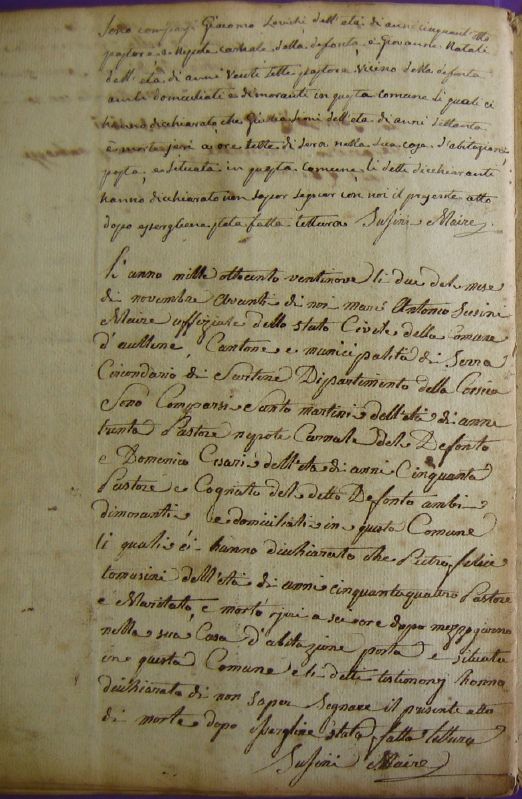 Sono comparsi Giacomo Lovichi dell'età di anni cinquant'otto
pastore e Nepote carnale della defonta, e Giovanne Natali
dell'età di anni Venti sette pastore Vicino della defonta
ambi domiciliati e dimoranti in questa comune li quali ci
hanno dichiarato che Giulia Simi dell'età di anni settanta
è morta jeri a ore sette di sera nella sua casa d'abitazione
posta, e situata in questa Comune, li dette dichiaranti
hanno dichiarato non saper segnar con noi il presente atto
dopo essergliene stata fatta lettura Susini Maire
L'anno mille ottocento ventinove li due del mese
di novembre avanti di noi Antonio Susini
Maire uffiziale dello stato Civile della Comune
d'aullene, Cantone e municipalità di Serra
Circondario di Sartene Dipartimento della Corsica
Sono Comparsi Santo martini dell'età di anne
trenta Pastore nepote Carnale del Defonto
e Domenico Cesari dell'età di anne Cinquanta
Pastore e Cognato del detto Defonto ambi
dimoranti e domiciliati in questa Comune
li quali ci hanno dichiarato che Pietro felice
tomasini dell'età di anni cinquantaquatro Pastore
e Maritato, è morto a sei ore dopo mezzo giorno
nella sua Casa d'abitazione posta e situata
in questa Comune e li dette testimonj hanno
dichiarato di non saper Segnare il presente atto
di morte dopo essergline stata fatta lettura
Susini Maire